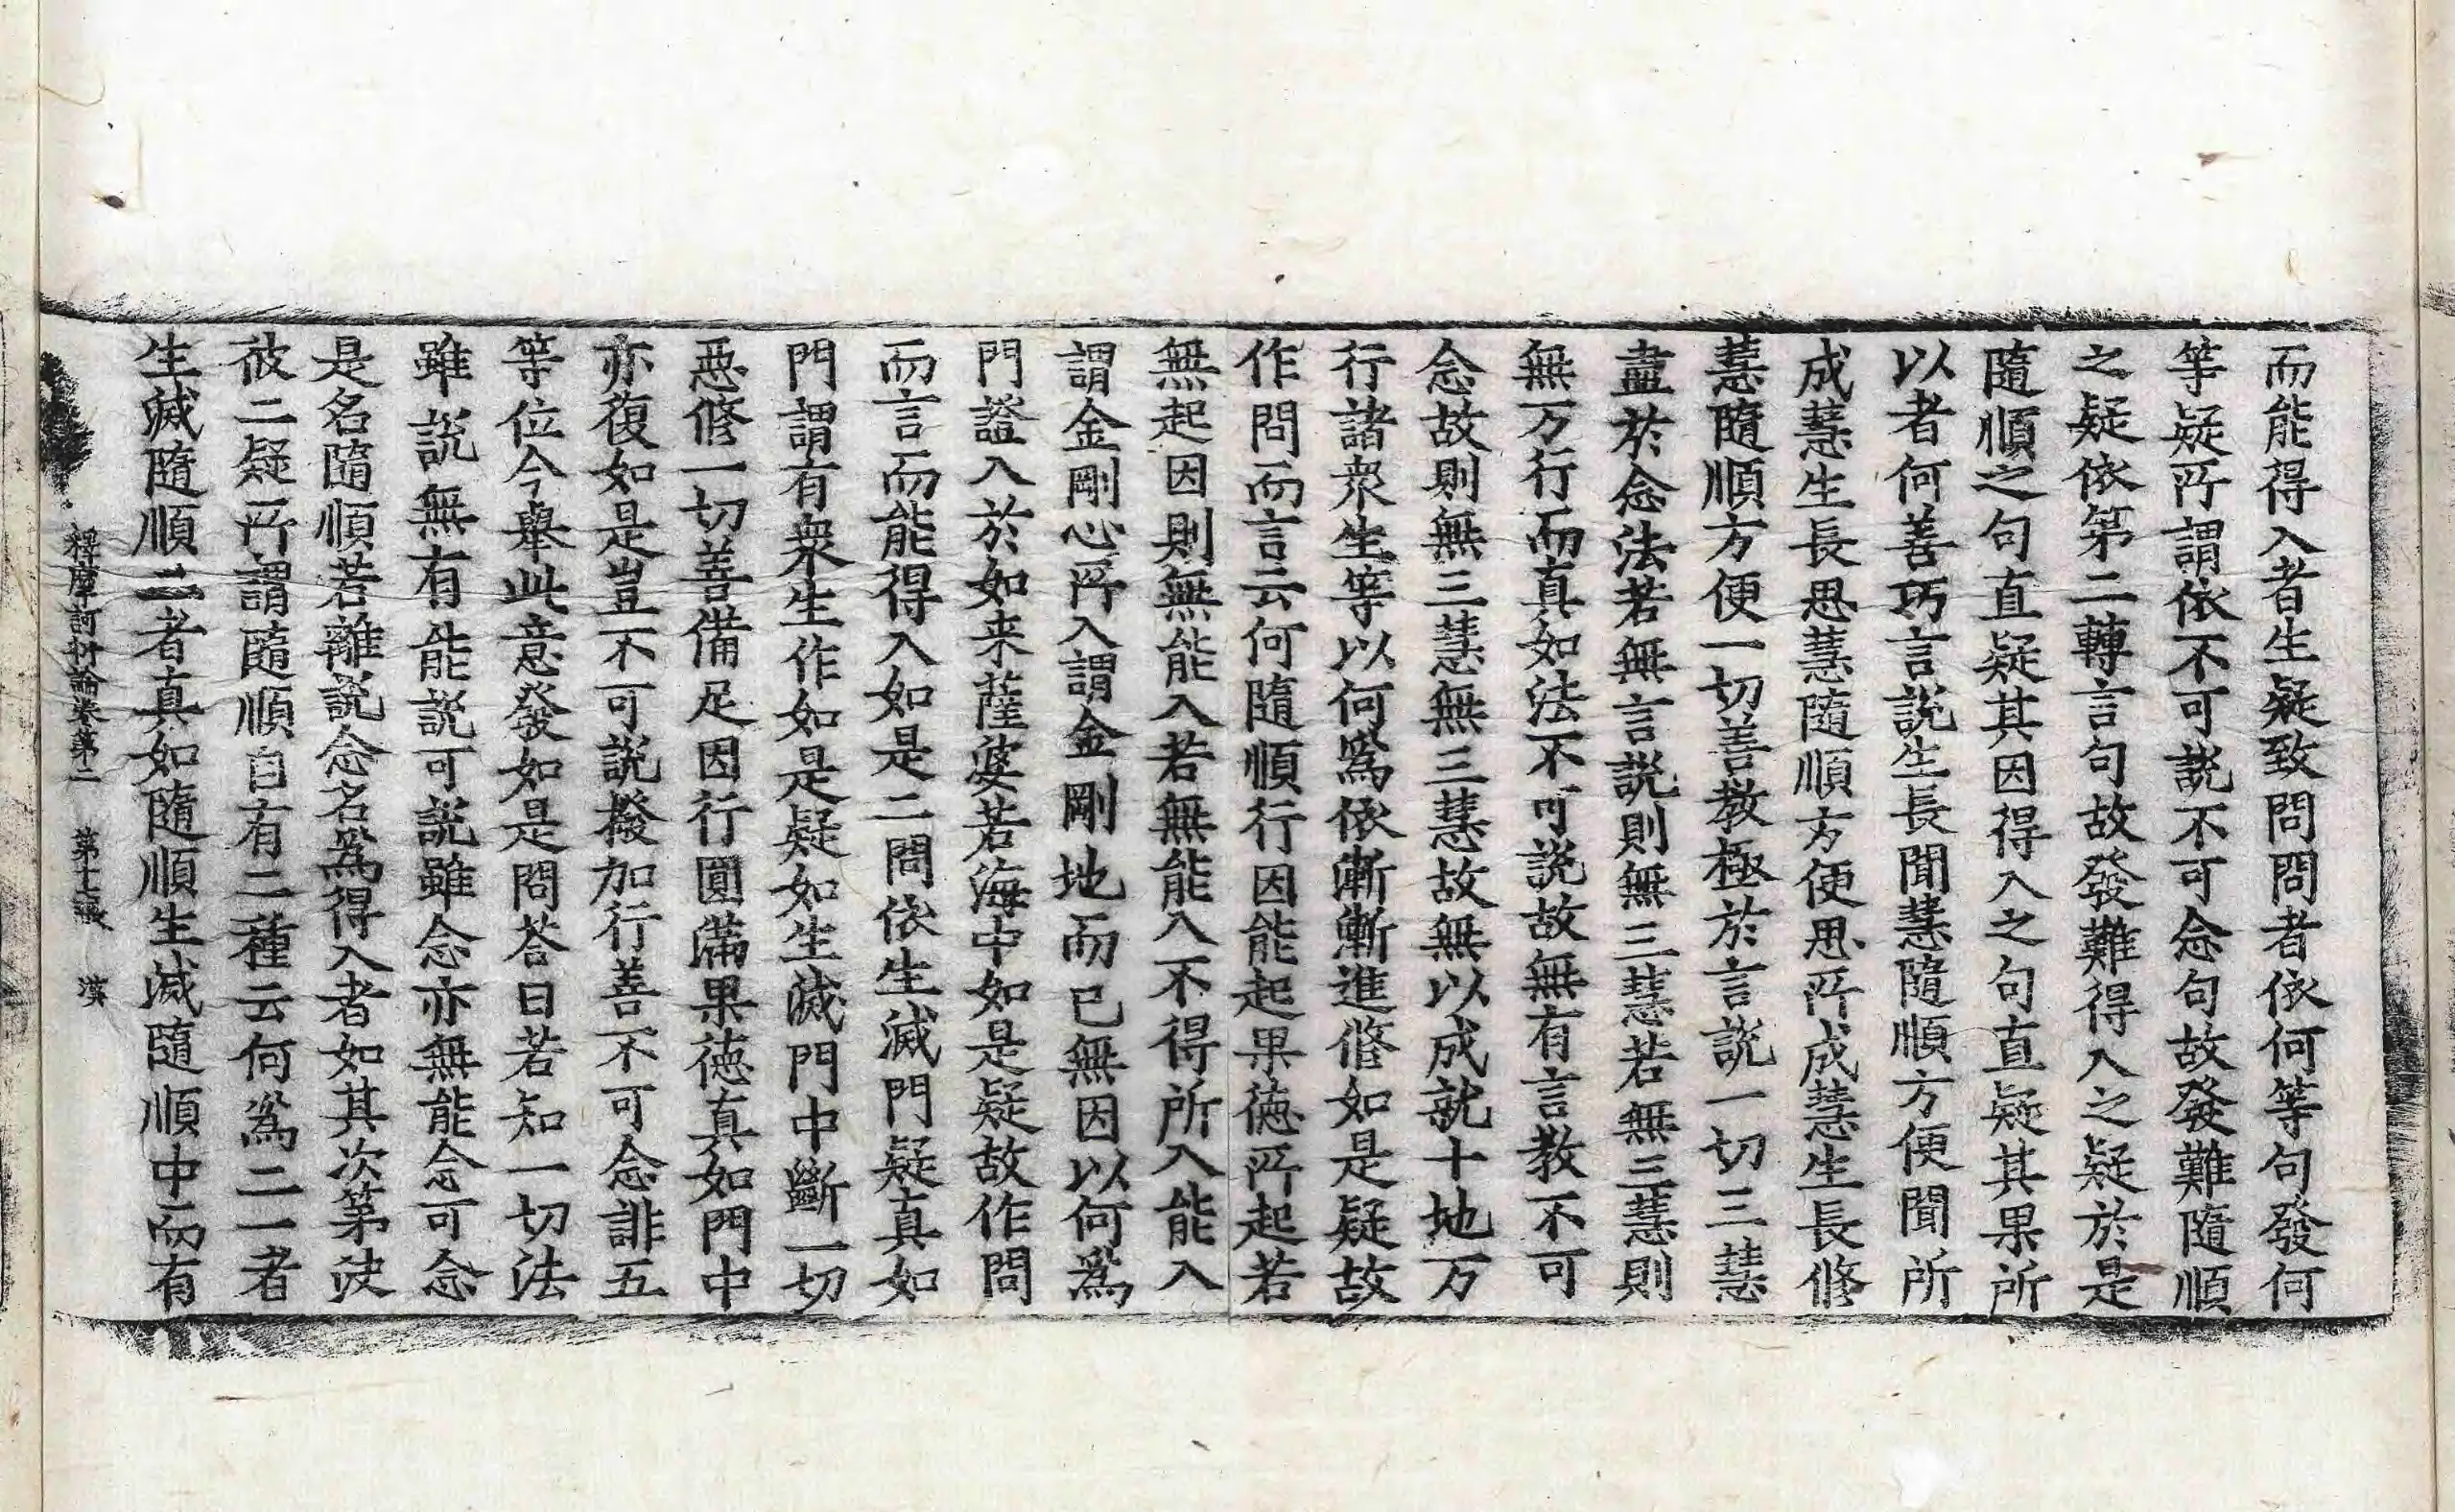 而能得入者生疑致問問者依何等句發何
等疑所謂依不可說不可念句故發難隨順
之疑依第二轉言句故發難得入之疑於是
隨順之句直疑其因得入之句直疑其果所
以者何善巧言說生長聞慧隨順方便聞所
成慧生長思慧隨順方便思所成慧生長修
慧隨順方便一切善教極於言說一切三慧
盡於念法若無言說則無三慧若無三慧則
無万行而真如法不可說故無有言教不可
念故則無三慧無三慧故無以成就十地万
行諸衆生等以何爲依漸漸進修如是疑故
作問而言云何隨順行因能起果德所起若
無起因則無能入若無能入不得所入能入
謂金剛心所入謂金剛地而已無因以何爲
門證入於如来薩婆若海中如是疑故作問
而言而能得入如是二問依生滅門疑真如
門謂有衆生作如是疑如生滅門中斷一切
惡修一切善備足因行圓滿果德真如門中
亦復如是豈不可說撥加行善不可念誹五
等位今舉此意發如是問荅曰若知一切法
雖說無有能說可說雖念亦無能念可念
是名隨順若離說念名爲得入者如其次第决
彼二疑所謂隨順自有二種云何爲二一者
生滅隨順二者真如隨順生滅隨順中而有
釋摩訶衍論卷第二　第十七張　漠